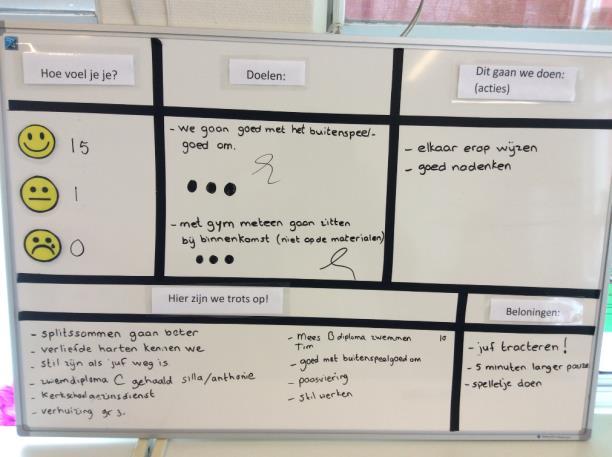 Hoe voel je je?
Doelen:
Dit gaan we doen:
(acties)
15
1
0
- we gaan goed met het buitenspeel-
goed om.
- met gym meteen gaan zitten
bij binnenkomst (niet op de materialen)
- elkaar erop wijzen
- goed nadenken
Hier zijn we trots op!
- splitssommen gaan beter
- verliefde harten kennen we
- stil zijn als juf weg is
- zwemdiploma C gehaald silla/anthonie
- kerkschoolgezinsdienst
- verhuizing gr 3.
- Mees B diploma zwemmen
Tim
10
- goed met buitenspeelgoed om
- paasviering
- stil werken
Beloningen:
- juf tracteren!
- 5 minuten langer pauze
- spelletje doen